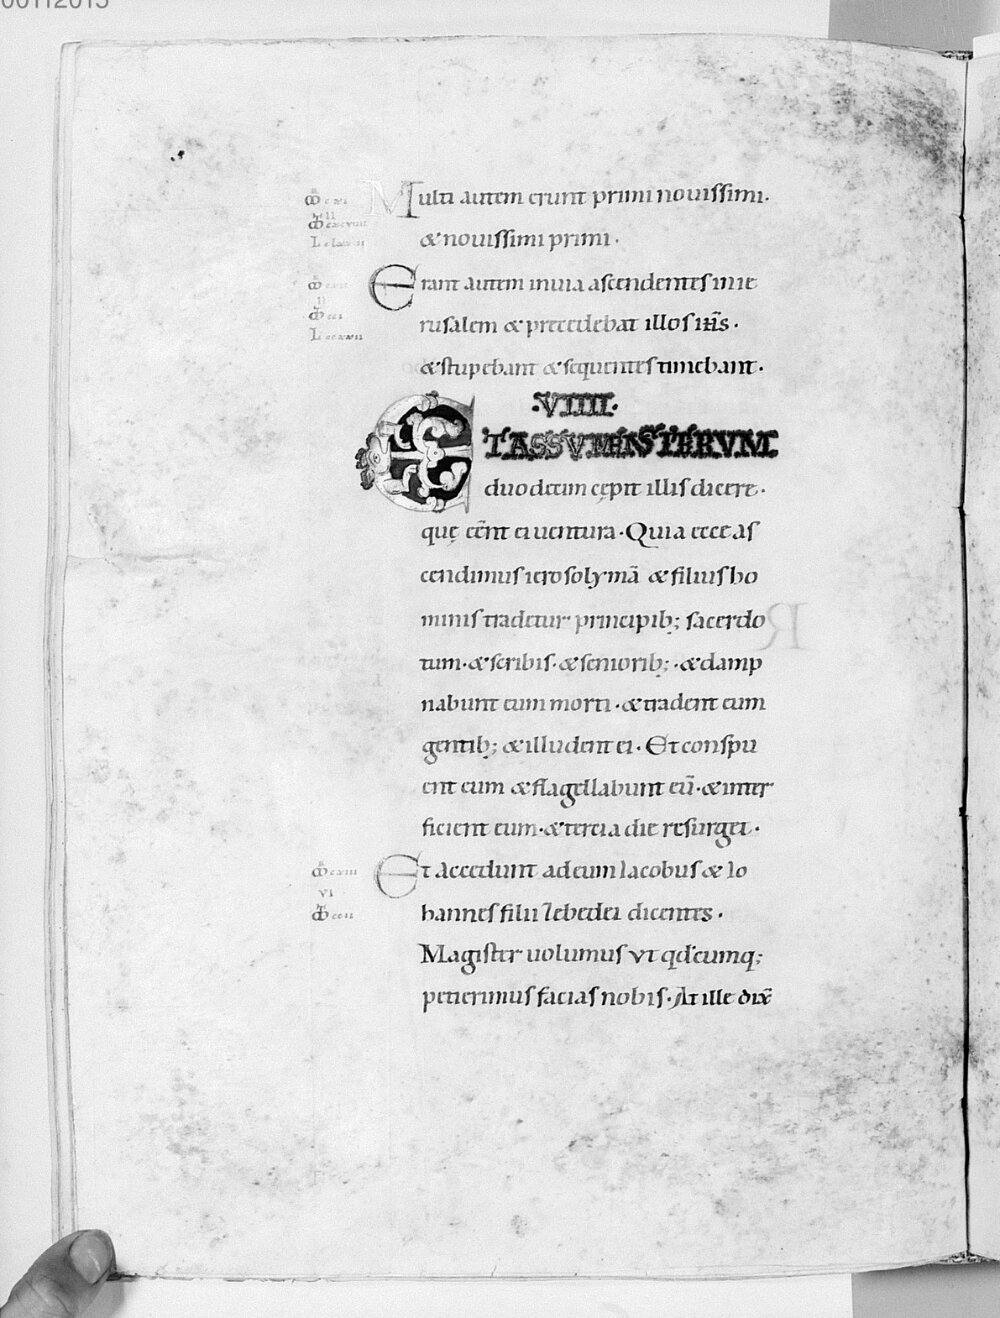 00112015
Multi autem erunt primi nouissimi.
& nouissimi primi.
Erant autem in uia ascendentes in ie
rusalem & precedebat illos iħs.
& stupebant & sequentes timebant.
.VIIII.
ET ASSUMENS ITERUM
duodecim cępit illis dicere.
quę eēnt ei uentura. Quia ecce as
cendimus ierosolymā & filius ho
minis tradetur principib; sacerdo
tum. & scribis. & seniorib;. & damp
nabunt eum morti. & tradent eum
gentib; & illudent ei. Et conspu
ent eum & flagellabunt eū. & inter
ficient eum. & tercia die resurget.
Et accedunt ad eum Iacobus & Io
hannes filii Zebedei dicentes.
Magister uolumus ut qđcumq;
petierimus facias nobis. At ille dix̄